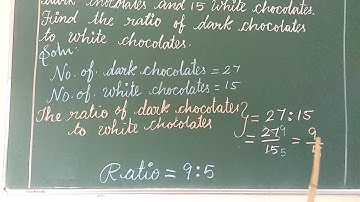 dark chocolates and 15 white chocolates.
Find the ratio of dark chocolates
to white chocolates.
Soln:
No. of dark chocolates = 27
No. of white chocolates = 15
The ratio of dark chocolates } = 27:15
to white chocolates = 27 9 / 15 5 = 9 / 5
Ratio = 9:5